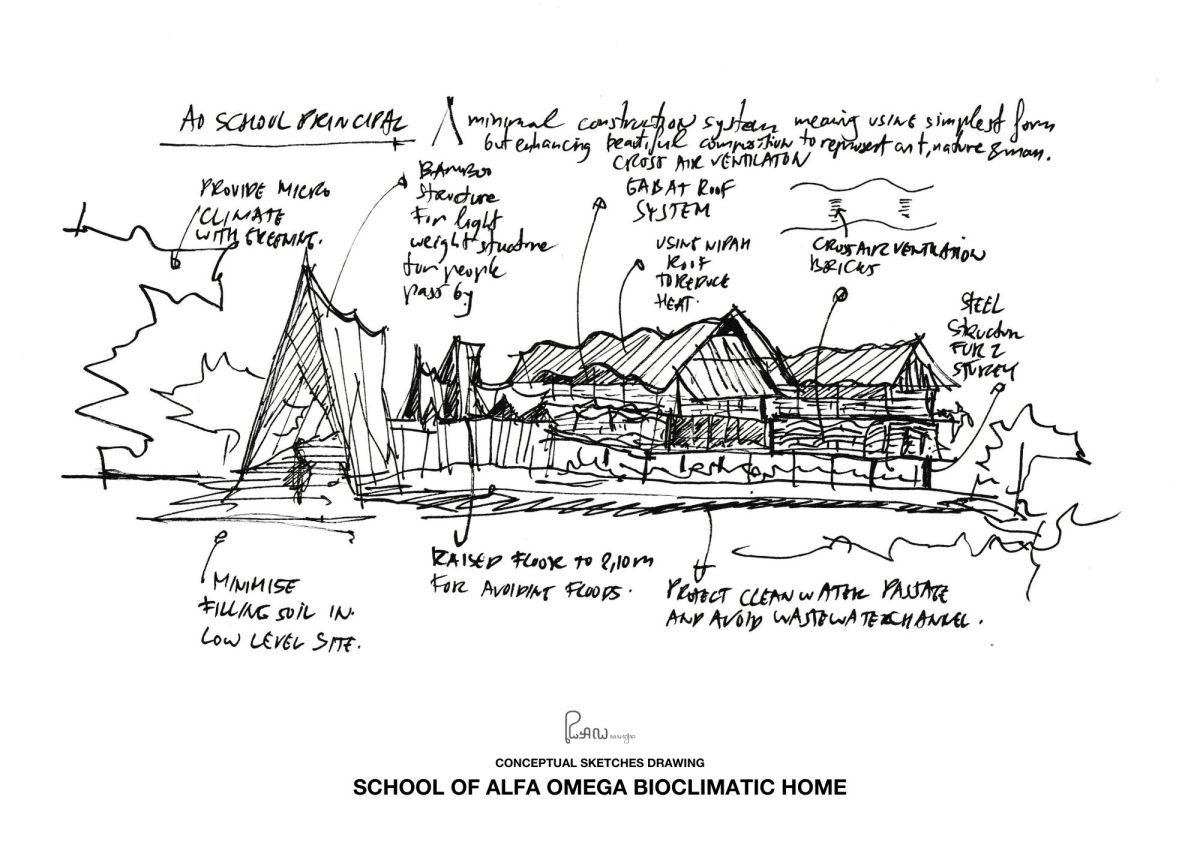 AO SCHOOL PRINCIPAL
minimal construction system meaning using simplest form
but enhancing beautiful composition to represent art, nature & man.
PROVIDE MICRO
CLIMATE
WITH GREENING.
BAMBOO
Structure
For light
weight structure
for people
pass by
CROSS AIR VENTILATON
GABAT ROOF
SYSTEM
USING NIPAH
ROOF
TO REDUCE
HEAT.
CROSS AIR VENTILATION
BRICKS
STEEL
Structur
FOR 2
STOREY
MINIMISE
FILLING SOIL IN
LOW LEVEL SITE.
RAISED FLOOR TO 2,10m
FOR AVOIDING FLOODS.
PROTECT CLEAN WATER PASSAGE
AND AVOID WASTEWATER CHANNEL.
RAW
CONCEPTUAL SKETCHES DRAWING
SCHOOL OF ALFA OMEGA BIOCLIMATIC HOME